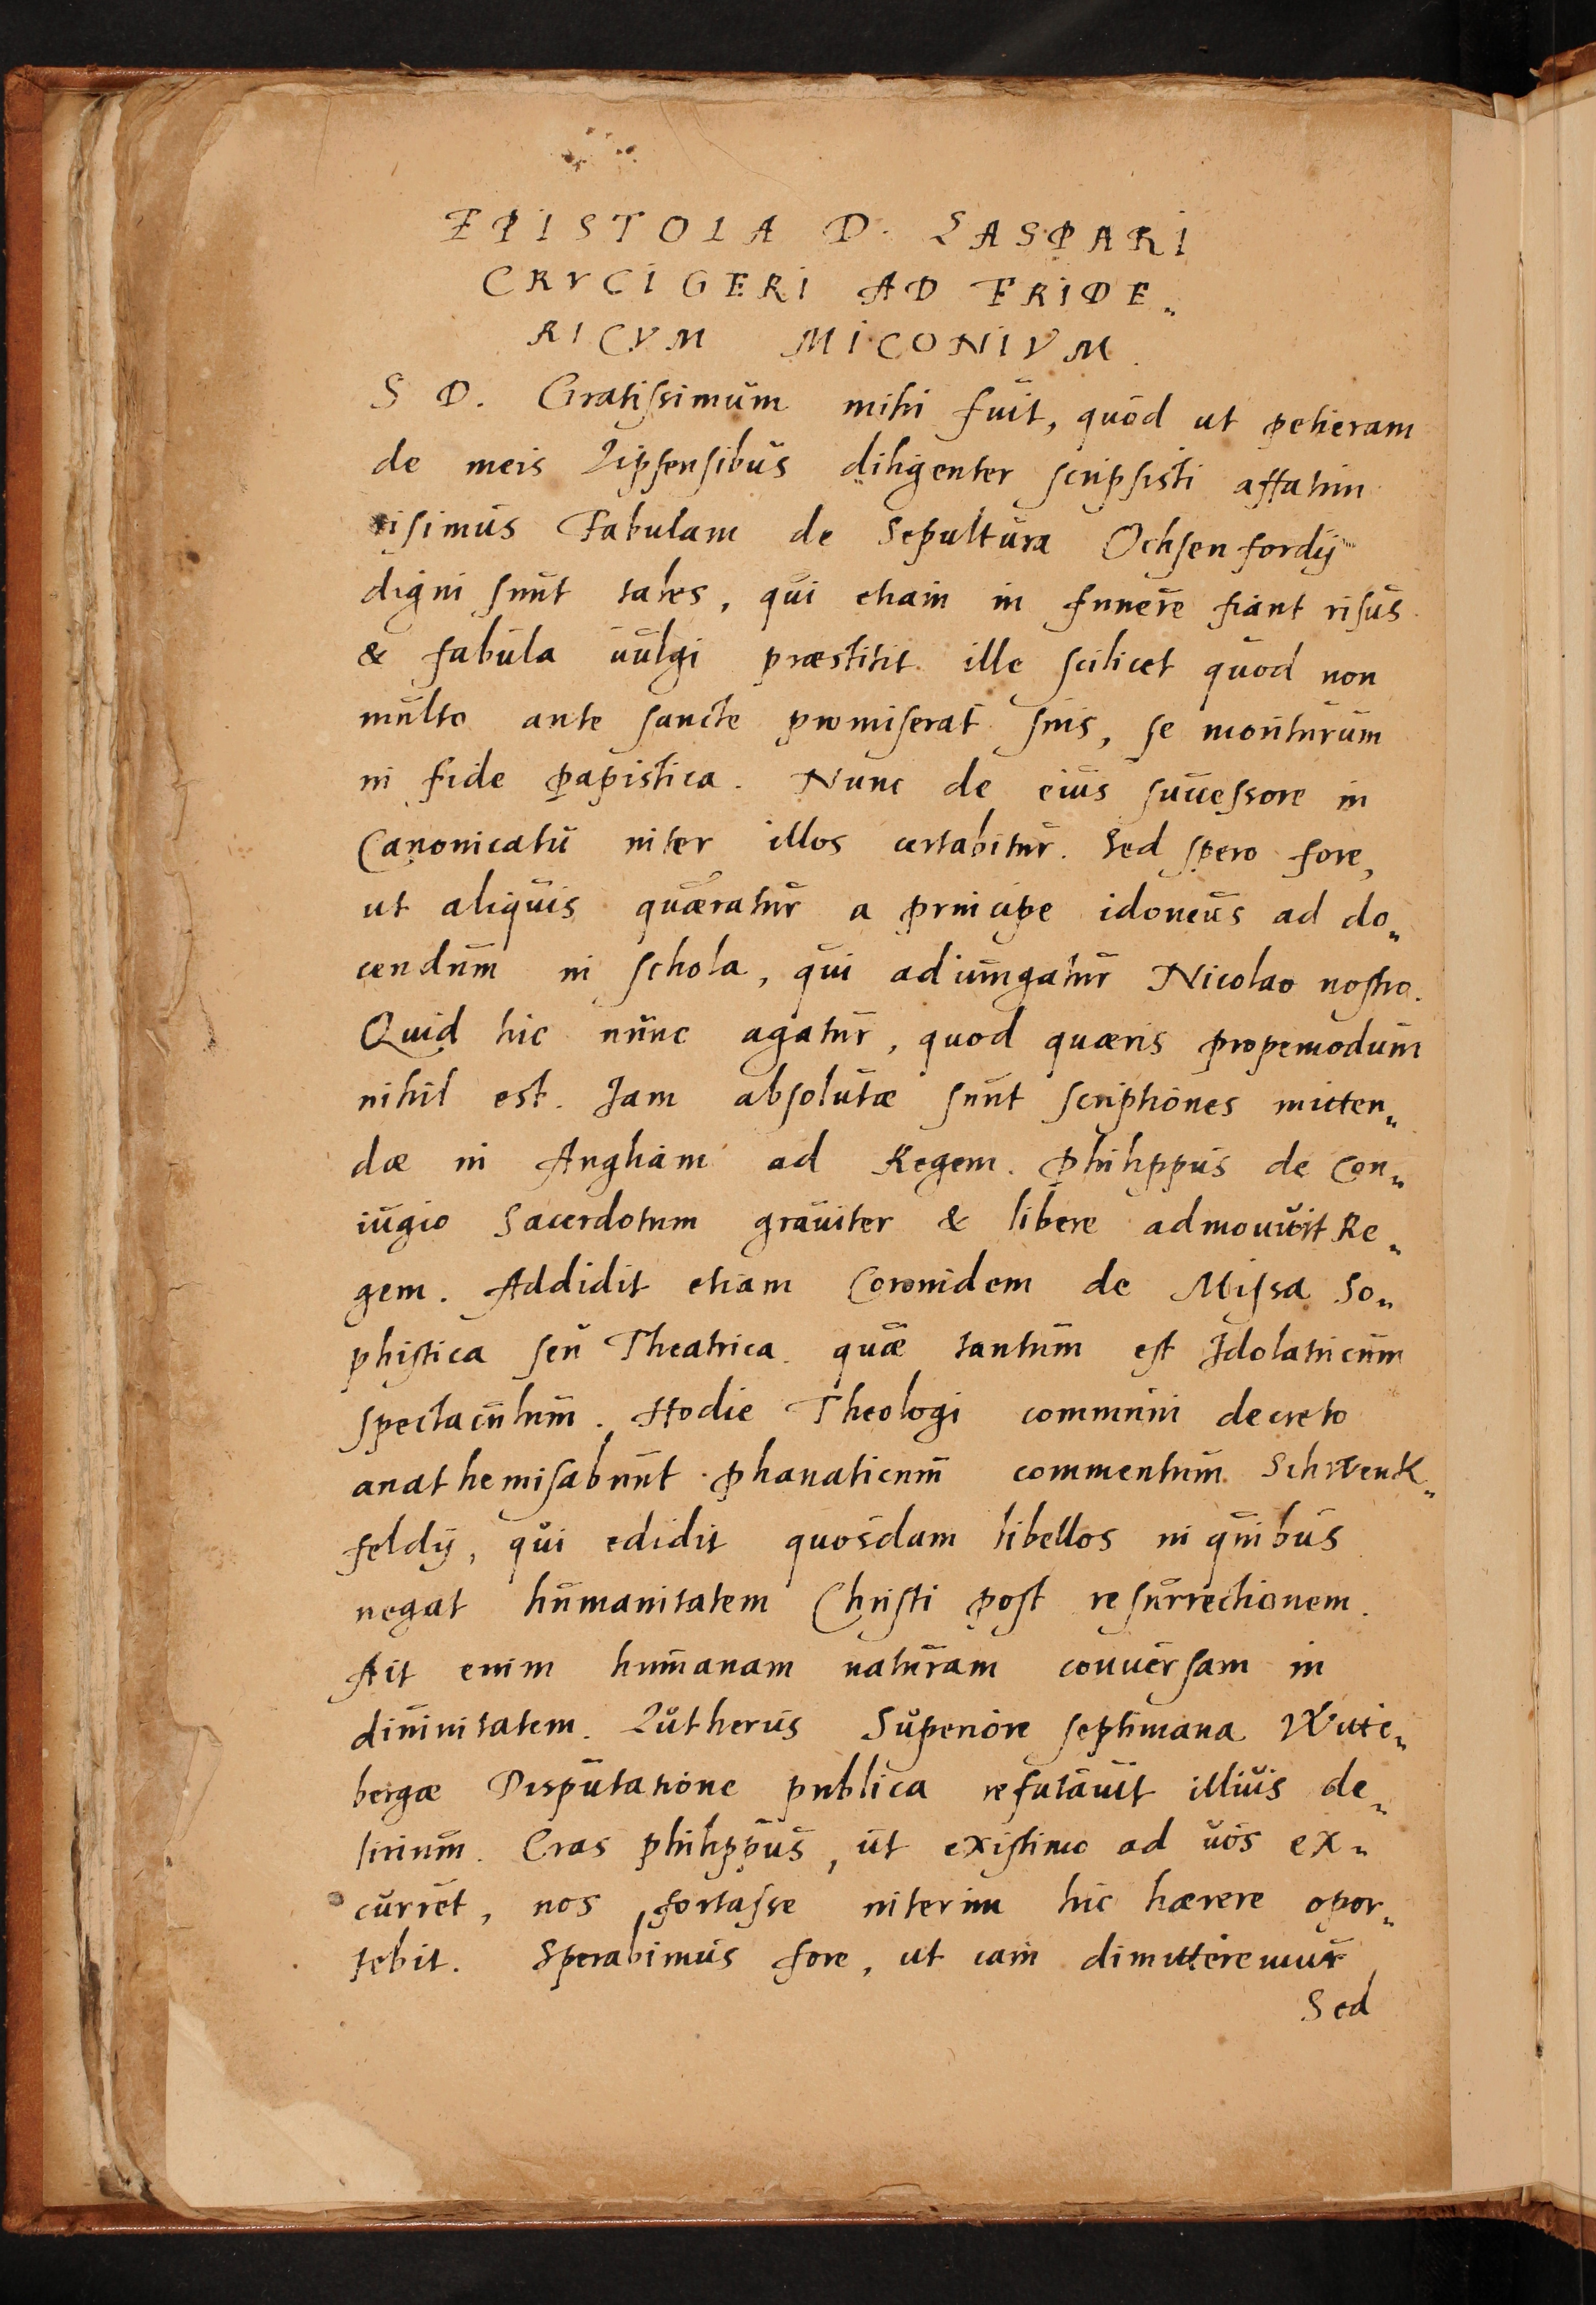 EPISTOLA D. CASPARI
CRVCIGERI AD FRIDE„
RICVM MICONIVM.
S D. Gratissimum mihi fuit, quod ut petieram
de meis Lipsensibus diligenter scripsisti affatim
risimus Fabulam de Sepultura Ochsenfordij
digni sunt tales, qui etiam in funere fiant risus
& fabula uulgi præstitit ille scilicet quod non
multo ante sancte promiserat suis, se moriturum
in fide papistica. Nunc de eius successore in
Canonicatu inter illos certabitur. Sed spero fore,
ut aliquis quæratur a principe idoneus ad do„
cendum in schola, qui adiungatur Nicolao nostro.
Quid hic nunc agatur, quod quæris propemodum
nihil est. Iam absolutæ sunt scriptiones mitten„
dæ in Angliam ad Regem. Philippus de Con„
iugio Sacerdotum grauiter & libere admouuit Re„
gem. Addidit etiam Coronidem de Missa So„
phistica seu Theatrica. quæ tantum est Idolatricum
spectaculum. Hodie Theologi communi decreto
anathemisabunt phanaticum commentum Schwenk„
feldij, qui edidit quosdam libellos in quibus
negat humanitatem Christi post resurrectionem.
Ait enim humanam naturam conuersam in
diuinitatem. Lutherus Superiore septimana Witte„
bergæ Disputatione publica refutauit illius de„
lirium. Cras philippus, ut existimo ad uos ex„
curret, nos fortasse interim hic hærere opor„
tebit. Sperabimus fore, ut iam dimitteremur
Sed